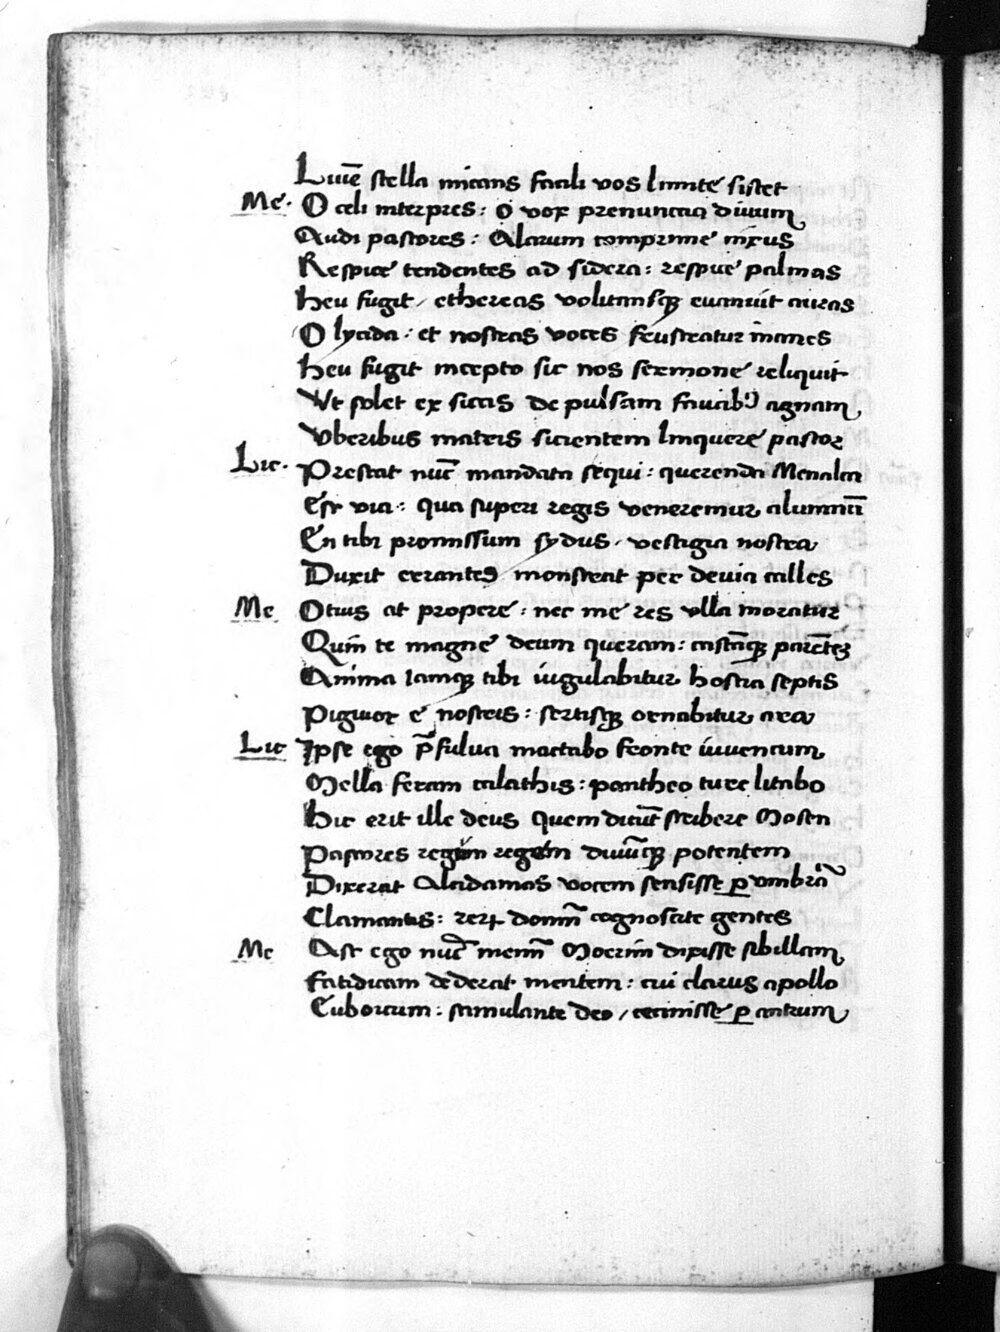 Luce᷒ stella micans facili vos limite sistet
Me. O celi interpres : o vox prenuncia diuum
Audi pastores : Alarum comprime nixus
Respice tendentes ad sidera : respue palmas
heu fugit / ethereas volitansq euanuit auras
O lycida : et nostras voces frustratur inanes
heu fugit incepto sic nos sermone reliquit
Vt solet ex siccis depulsam faucibꝰ agnam
Vberibus matris sicientem linquere pastor
Lic. Prestat nūc mandata sequi : querenda Menalca
Est via : qua superi regis veneremur alumnū
En tibi promissum sydus / vestigia nostra
Duxit errantes monstrat per deuia calles
Me Otius at propere : nec me res vlla moratur
Quin te magne deum queram : castāq parētez
Anima iamq tibi iugulabitur hostia septis
Pignor e nostris : sertisq ornabitur ara
Lic Ipse ego p̄ fulua mactabo fronte iuuencum
Mella feram calathis : pantheo ture litabo
hic erit ille deus quem dicūt scribere Mosen
Pastores regum regem diuūq potentem
Dixerat Alcidamas vocem sensisse ꝑ vmbrā
Clamantis : rerꝝ dominū cognoscite gentes
Me Ast ego nūc memini Moerim dixisse sibillam
Fatidicam dederat mentem : cui clarus apollo
Euboicum : stimulante deo / cecinisse ꝑ antrum